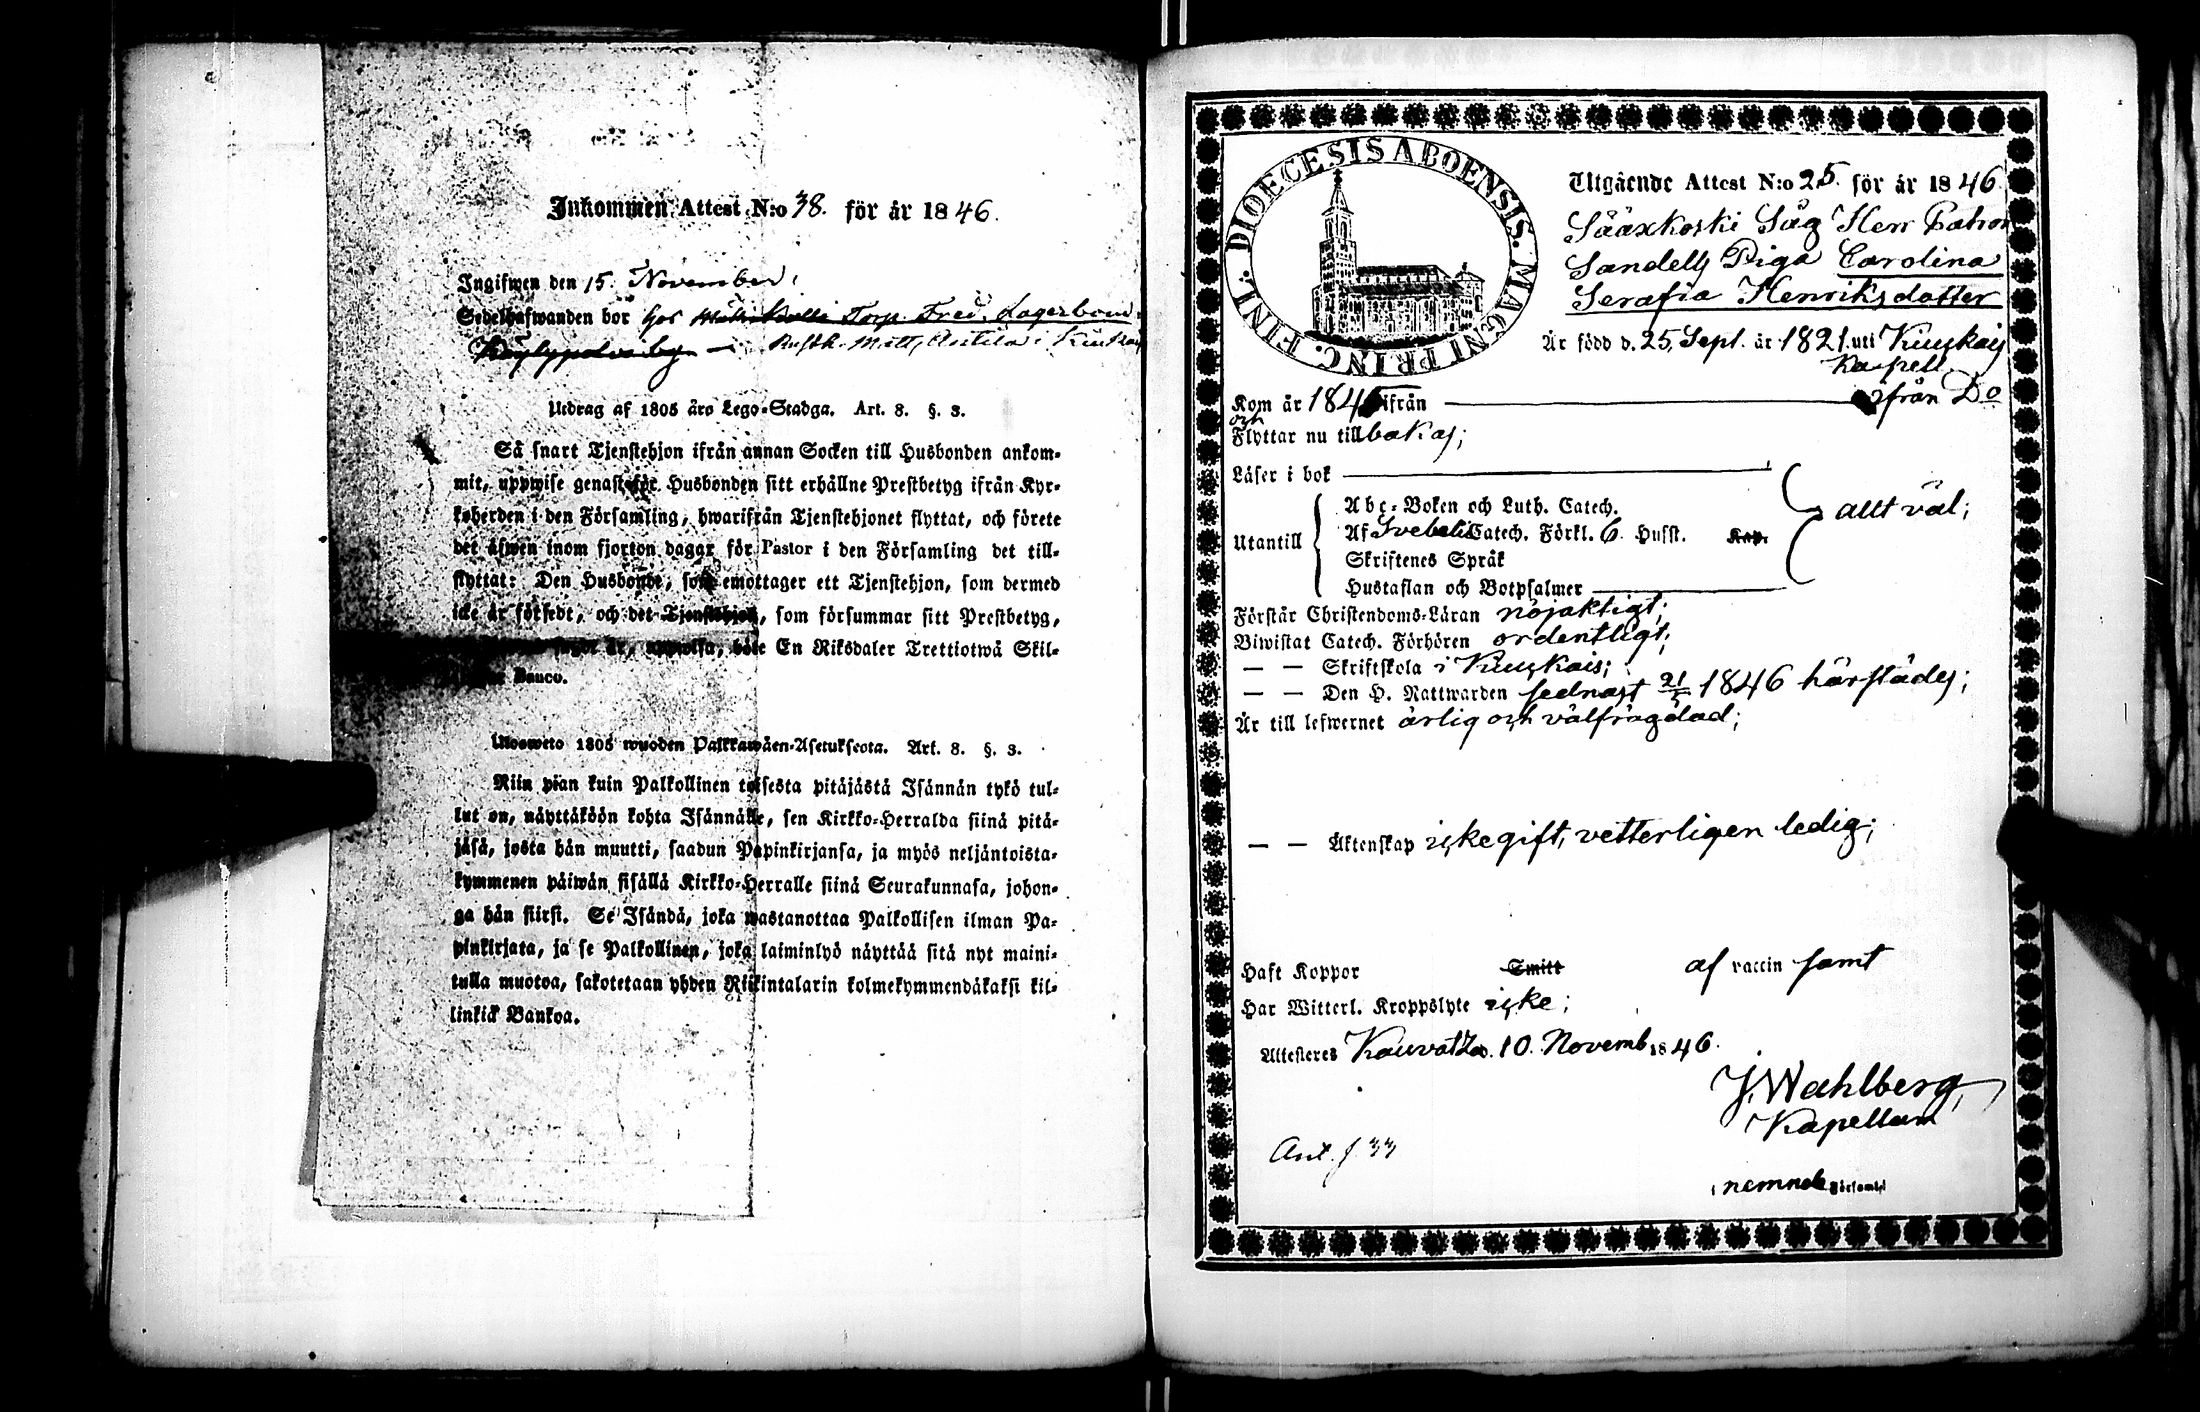 Inkommen Attest N:o 38. för år 1846.
Ingifwen den 15. November,
Sedelhafwanden bor hos Torp. Fred. Lagerbom
Rusth. Matts Anttila i
Utdrag af 1805 års Lego-Stadga. Art. 8. §. 3.
Så snart Tjenstehjon ifrån annan Socken till Husbonden ankom-
mit, uppwise genast för Husbonden sitt erhållne Prestbetyg ifrån Kyr-
koherden i den Församling, hwarifrån Tjenstehjonet flyttat, och förete
det äfwen inom fjorton dagar för Pastor i den Församling det till-
flyttat: Den Husbonde, som emottager ett Tjenstehjon, som dermed
icke är försedt, och det Tjenstehjon, som försummar sitt Prestbetyg,
sagdt är, uppwisa, böte En Riksdaler Trettiotwå Skil-
Banco.
Ulosweto 1805 wuoden Palkkawäen-Asetuksesta. Art. 8. §. 3.
Niin pian kuin Palkollinen toisesta pitäjästä Isännän tykö tul-
lut on, näyttäköön kohta Isännälle, sen Kirkko-Herralda siinä pitä-
jäsä, josta hän muutti, saadun Papinkirjansa, ja myös neljäntoista-
kymmenen päiwän sisällä Kirkko-Herralle siinä Seurakunnasa, johon-
ga hän siirsi. Se Isändä, joka wastanottaa Palkollisen ilman Pa-
pinkirjata, ja se Palkollinen, joka laiminlyö näyttää sitä nyt maini-
tulla muotoa, sakotetaan yhden Riikintalarin kolmekymmendäkaksi kil-
linkiä Bankoa.
FINL. DIOECESIS ABOENSIS. MAGNI PRINC.
Utgående Attest N:o 25. för år 1846.
Sääxkoski Såg Herr Patron
Sandells Piga Carolina
Serafia Henriksdotter
Är född d. 25, Sept. år 1821. uti Kiuskais
Kapell
Kom år 184 ifrån ifrån Do
och
Flyttar nu tillbakas;
Läser i bok
Utantill
Abc-Boken och Luth. Catech.
Af Svebelii Catech. Förkl. 6. Hufst. Kap.
allt väl;
Skriftenes Språk
Hustaflan och Botpsalmer
Förstår Christendoms-Läran nöjaktigt;
Biwistat Catech. Förhören ordentligt;
— — Skriftskola i Kiuskais;
— — Den H. Nattwarden sednast 21/5 1846 härstädes;
Är till lefwernet ärlig och välfrägdad;
— — Äktenskap icke gift, vetterligen ledig;
Haft Koppor Smitt af vaccin samt
Har Witterl. Kroppslyte icke;
Attesteres Kauvatza d. 10. Novemb 1846.
J. Wahlberg,
Kapellan
Ant. f 33
i nemnde Församl.